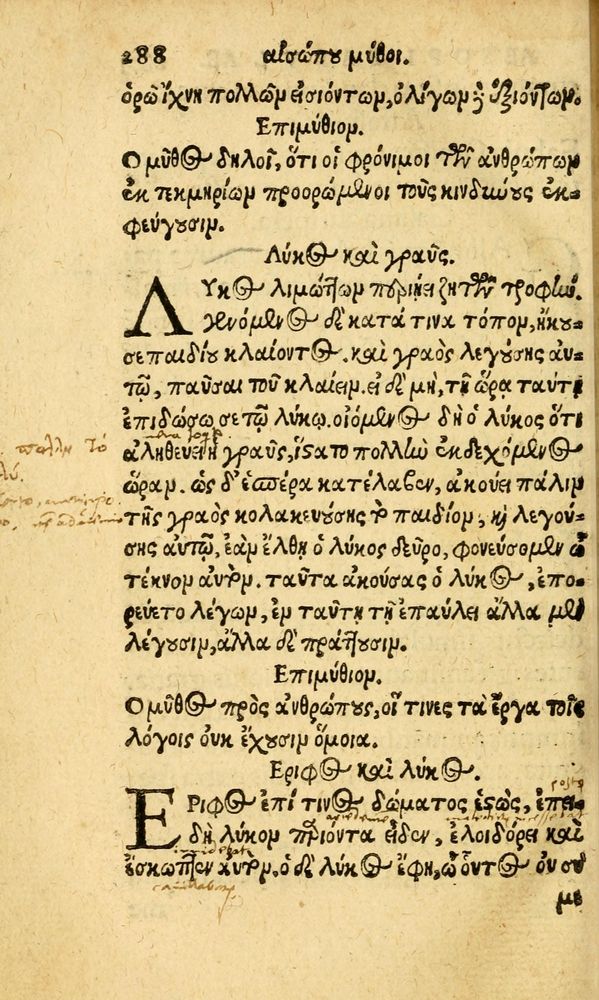 288 αἰσώπου μῦθοι.
ὁρῶ ἴχνη πολλῶν εἰσιόντων, ὀλίγων δὲ ἐξιόντων.
Ἐπιμύθιον.
Ο μῦθος δηλοῖ, ὅτι οἱ φρόνιμοι τῶν ἀνθρώπων
ἐκ τεκμηρίων προορώμενοι τοὺς κινδύνους ἐκ-
φεύγουσιν.
Λύκος καὶ γραῦς.
ΛΥκος λιμώττων περιῄει ζητῶν τροφήν.
γενόμενος δὲ κατά τινα τόπον, ἤκου-
σε παιδίου κλαίοντος. καὶ γραὸς λεγούσης αὐ-
τῷ, παῦσαι τοῦ κλαίειν. εἰ δὲ μὴ, τῇ ὥρᾳ ταύτῃ
ἐπιδώσω σε τῷ λύκῳ. οἰόμενος δὴ ὁ λύκος ὅτι
ἀληθεύει ἡ γραῦς, ἵστατο πολλὴν ἐκδεχόμενος
ὥραν. ὡς δ' ἑσπέρα κατέλαβεν, ἀκούει πάλιν
τῆς γραὸς κολακευούσης τὸ παιδίον, καὶ λεγού-
σης αὐτῷ, ἐὰν ἔλθῃ ὁ λύκος δεῦρο, φονεύσομεν ὦ
τέκνον αὐτόν. ταῦτα ἀκούσας ὁ λύκος, ἐπο-
ρεύετο λέγων, ἐν ταύτῃ τῇ ἐπαύλει ἄλλα μὲν
λέγουσιν, ἄλλα δὲ πράττουσιν.
Ἐπιμύθιον.
Ο μῦθος πρὸς ἀνθρώπους, οἵ τινες τὰ ἔργα τοῖς
λόγοις οὐκ ἔχουσιν ὅμοια.
Εριφος καὶ λύκος.
ΕΡιφος ἐπί τινος δώματος ἑστὼς, ἐπει-
δὴ λύκον παριόντα εἶδεν, ἐλοιδόρει καὶ
ἔσκωπτεν αὐτόν, ὁ δὲ λύκος ἔφη, ὦ οὗτος οὐ σύ
με